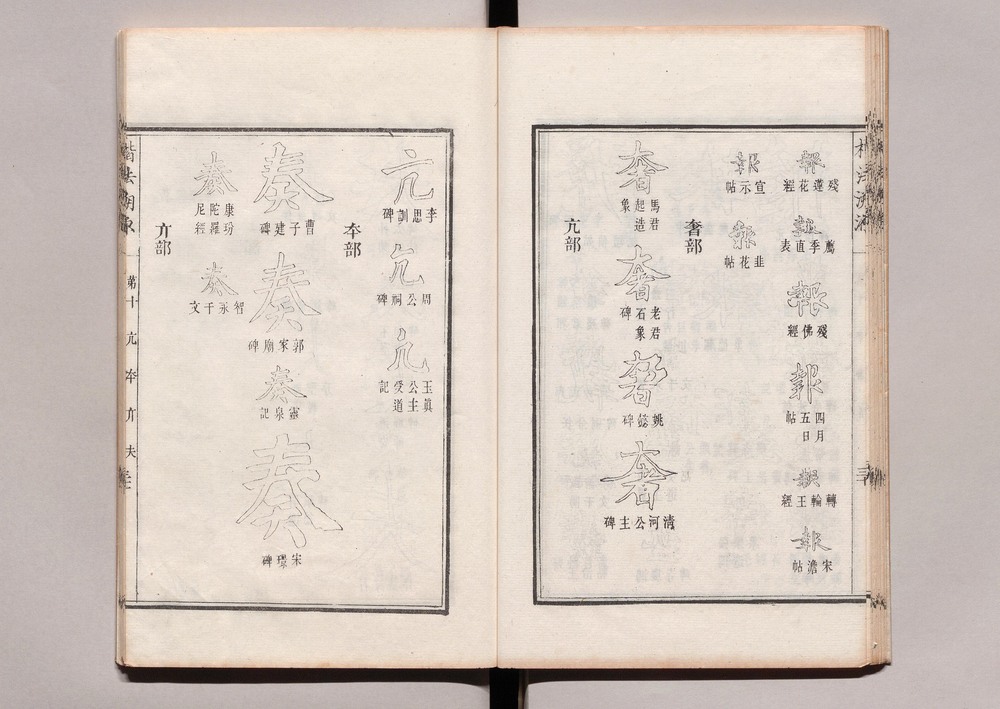 報
殘蓮花經
報
薦季直表
報
殘佛經
報
四月五日帖
報
轉輪王經
報
宋儋帖
報
宣示帖
報
韭花帖
奢部
奢
馬君起造象
奢
老君石象碑
奢
姚懿碑
奢
清河公主碑
亢部
亢
李思訓碑
亢
周公祠碑
亢
玉真公主受道記
夲部
奏
曹子建碑
奏
郭家廟碑
奏
靈泉記
奏
宋璟碑
奏
康玢陀羅尼經
奏
智永千文
夰部
楷法溯源
第十
亢
夲
夰
夫